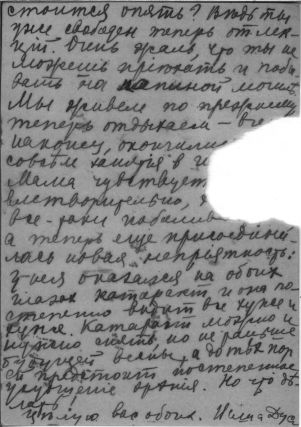 стоится опять? Ведь ты
уже свободен теперь от лек-
ций. Очень жаль что ты не
можешь приехать и побы-
вать на папиной могиле
Мы живем по прежнему
теперь отдыхаем – в
наконец, окончились
совсем занятия в
Мама чувствует
влетворительно,
все-таки побалива
а теперь еще присоедини-
лась новая неприятность:
у нея оказался на обоих
глазах катаракт и она по-
степенно видит все хуже и
хуже. Катаракт можно и
нужно снять, но не раньше
будущей весны, а до тех пор
ей предстоит постепенное
ухудшение зрения. Но что де-
лать
Целую вас обоих.